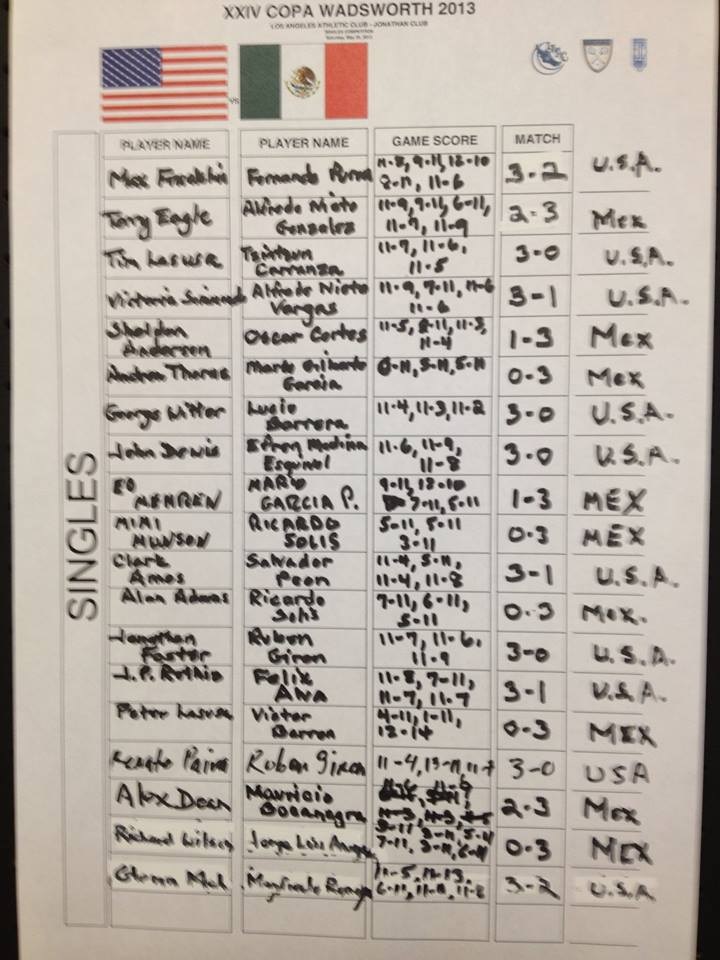 XXIV COPA WADSWORTH 2013
LOS ANGELES ATHLETIC CLUB - JONATHAN CLUB
SINGLES COMPETITION
VS
PLAYER NAME PLAYER NAME GAME SCORE MATCH
SINGLES
Max Franklin Fernando 11-8, 9-11, 12-10 3-2 U.S.A.
8-11, 11-6
Tony Eagle Alfredo Nieto 11-9, 9-11, 6-11, 2-3 Mex
Gonzalez 11-9, 11-9
Tim Lasusa Tzintzun 11-9, 11-6, 3-0 U.S.A.
Carranza 11-5
Victoria Alfredo Nieto 11-9, 7-11, 11-6 3-1 U.S.A.
Vargas 11-6
Sheldon Oscar Cortes 11-5, 11-3, 1-3 Mex
Anderson 11-4
Andrea Thoras Mario Gilberto 5-11, 5-11 0-3 Mex
Garcia
George Witter Lucio 11-4, 11-3, 11-2 3-0 U.S.A.
Barrera
John Dewis Efren Medina 11-6, 11-9, 3-0 U.S.A.
Esquivel 11-8
ED MARIO 9-11, 12-10 1-3 MEX
MEHREN GARCIA P. 7-11, 5-11
MIMI RICARDO 5-11, 5-11 0-3 MEX
MUNSON SOLIS 3-11
Clark Salvador 11-4, 5-11, 3-1 U.S.A.
Amos Peon 11-4, 11-8
Alan Adams Ricardo 7-11, 6-11, 0-3 Mex.
Solis 5-11
Jonathan Ruben 11-7, 11-6, 3-0 U.S.A.
Foster Giron 11-9
J.P. Ruthie Felix 11-8, 7-11, 3-1 U.S.A.
ANA 11-7, 11-7
Peter Lasusa Victor 4-11, 1-11, 0-3 MEX
Barron 12-14
Renato Paiva Ruben Giron 11-4, 13-11, 11-7 3-0 USA
Alex Dean Mauricio 2-3 Mex
Bocanegra
Richard Wilson Jorge Luis 7-11, 3-11, 0-3 MEX
Glenn 11-5, 3-2 U.S.A
6-11, 11-8